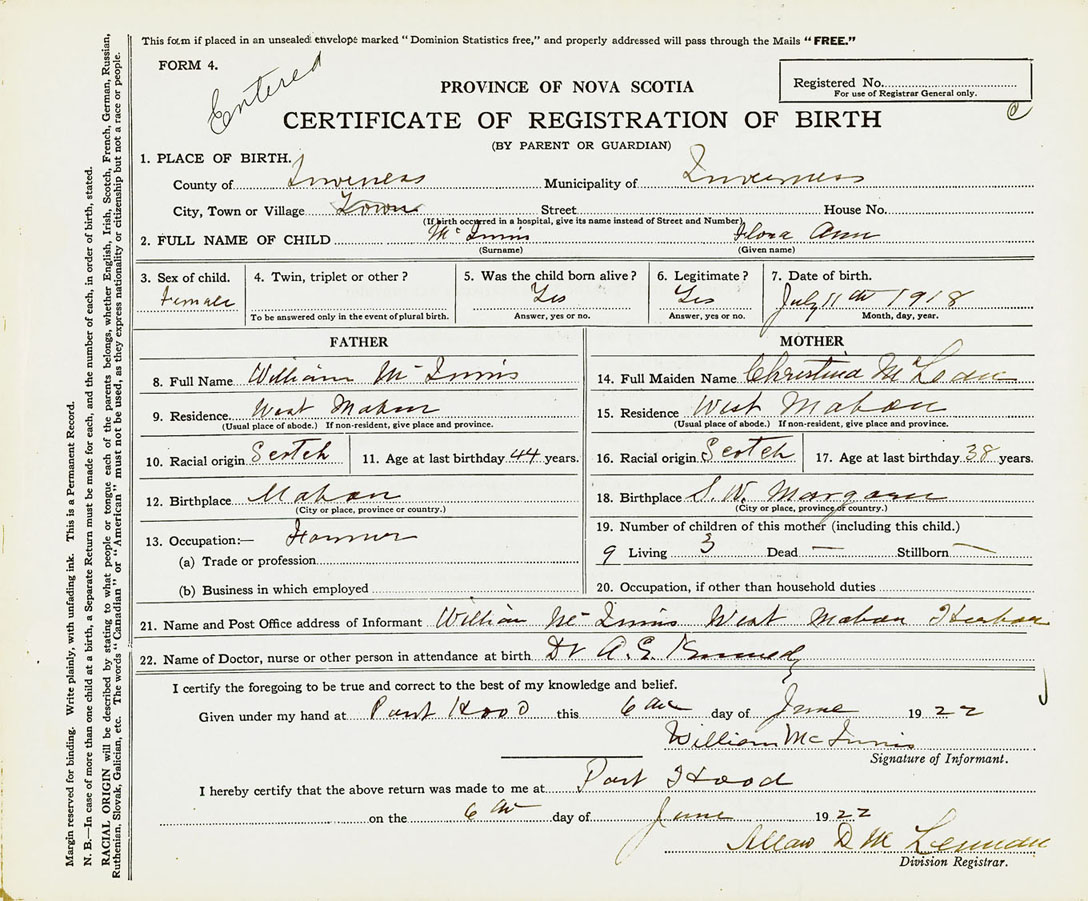 This form if placed in an unsealed envelope marked "Dominion Statistics free," and properly addressed will pass through the Mails "FREE."
FORM 4.
Entered
Registered No.
For use of Registrar General only.
PROVINCE OF NOVA SCOTIA
CERTIFICATE OF REGISTRATION OF BIRTH
(BY PARENT OR GUARDIAN)
1. PLACE OF BIRTH.
County of Inverness Municipality of Inverness
City, Town or Village Town Street House No.
(If birth occurred in a hospital, give its name instead of Street and Number)
2. FULL NAME OF CHILD McInnis Flora Ann
(Surname) (Given name)
3. Sex of child. 4. Twin, triplet or other? 5. Was the child born alive? 6. Legitimate? 7. Date of birth.
Female Yes Yes July 11th 1918
To be answered only in the event of plural birth. Answer, yes or no. Answer, yes or no. Month, day, year.
FATHER
8. Full Name William McInnis
9. Residence West Mabou
(Usual place of abode.) If non-resident, give place and province.
10. Racial origin Scotch 11. Age at last birthday 44 years.
12. Birthplace Mabou
(City or place, province or country.)
13. Occupation:— Farmer
(a) Trade or profession
(b) Business in which employed
MOTHER
14. Full Maiden Name Christina McLean
15. Residence West Mabou
(Usual place of abode.) If non-resident, give place and province.
16. Racial origin Scotch 17. Age at last birthday 38 years.
18. Birthplace S. W. Margaree
(City or place, province or country.)
19. Number of children of this mother (including this child.)
9 Living 3 Dead — Stillborn —
20. Occupation, if other than household duties
21. Name and Post Office address of Informant William McInnis West Mabou Harbour
22. Name of Doctor, nurse or other person in attendance at birth Dr A. E. Kennedy
I certify the foregoing to be true and correct to the best of my knowledge and belief.
Given under my hand at Port Hood this 6th day of June 1922
William McInnis
Signature of Informant.
I hereby certify that the above return was made to me at Port Hood
on the 6th day of June 1922
Allan D Mc Lennan
Division Registrar.
Margin reserved for binding. Write plainly, with unfading ink. This is a Permanent Record.
N. B.—In case of more than one child at a birth, a Separate Return must be made for each, and the number of each, in order of birth, stated.
RACIAL ORIGIN will be described by stating to what people or tongue each of the parents belongs, whether English, Irish, Scotch, French, German, Russian,
Ruthenian, Slovak, Galician, etc. The words "Canadian" or "American" must not be used, as they express nationality or citizenship but not a race or people.